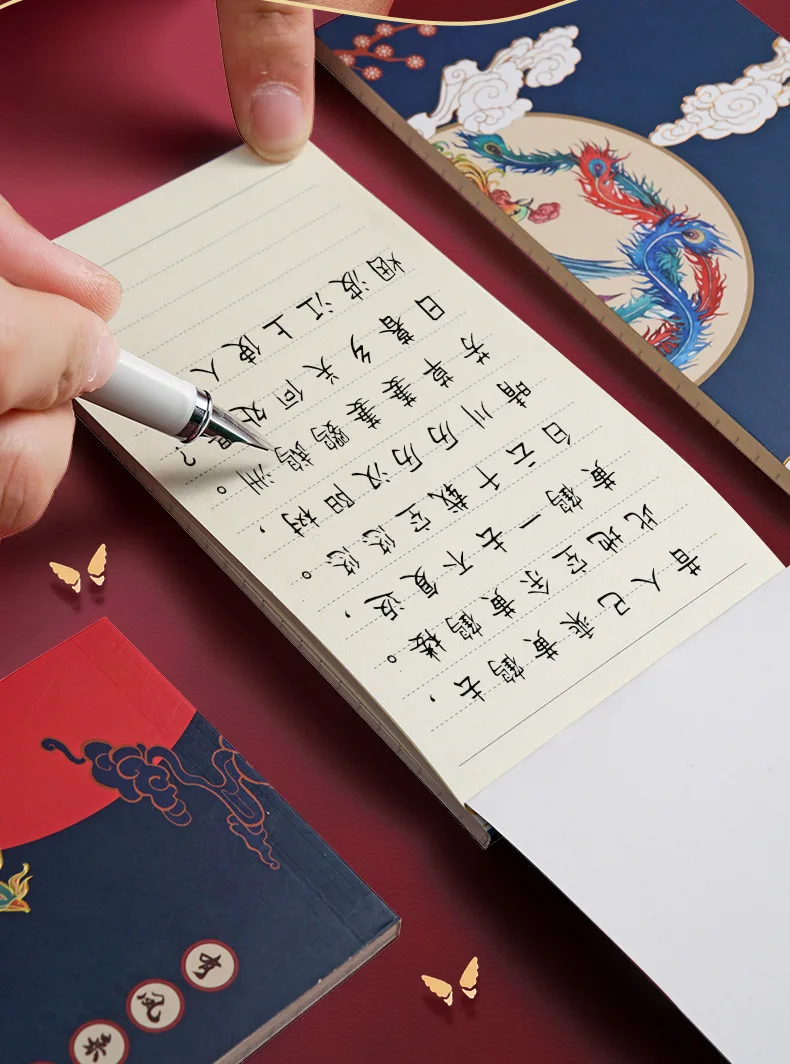 昔人已乘黄鹤去,
此地空余黄鹤楼。
黄鹤一去不复返,
白云千载空悠悠。
晴川历历汉阳树,
芳草萋萋鹦鹉洲。
日暮乡关何处是?
烟波江上使人
有凤来